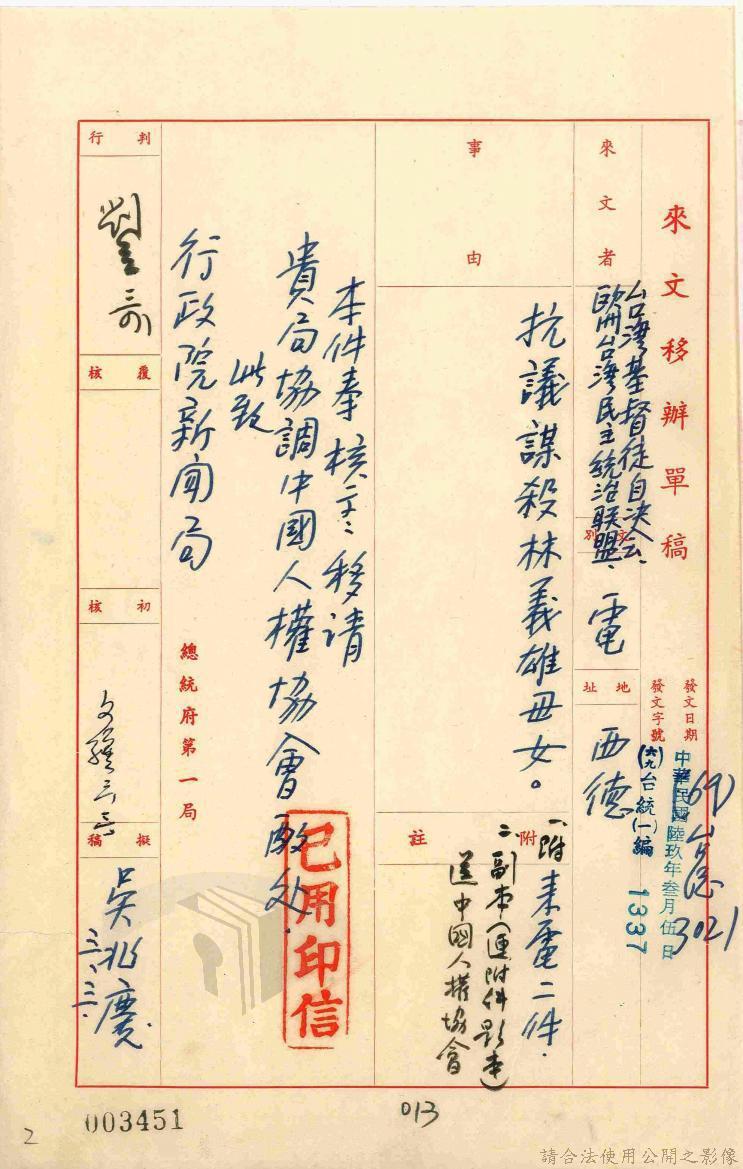 來文移辦單稿
發文日期
發文字號
中華民國陸玖年叁月伍日
(六九)台統(一)編 1337
(69)台
3021
來文者
台灣基督徒自決會、
歐洲台灣民主統治聯盟、
文別
電
地址
西德
事由
抗議謀殺林義雄母女。
附註
一、附來電二件.
二、副本(連附件影本)
送中國人權協會
本件奉核示:移請
貴局協調中國人權協會酌处.
此致
行政院新聞局
總統府第一局
已用印信
判行
覆核
初核
擬稿
吳兆慶
003451
013
2
請合法使用公開之影像